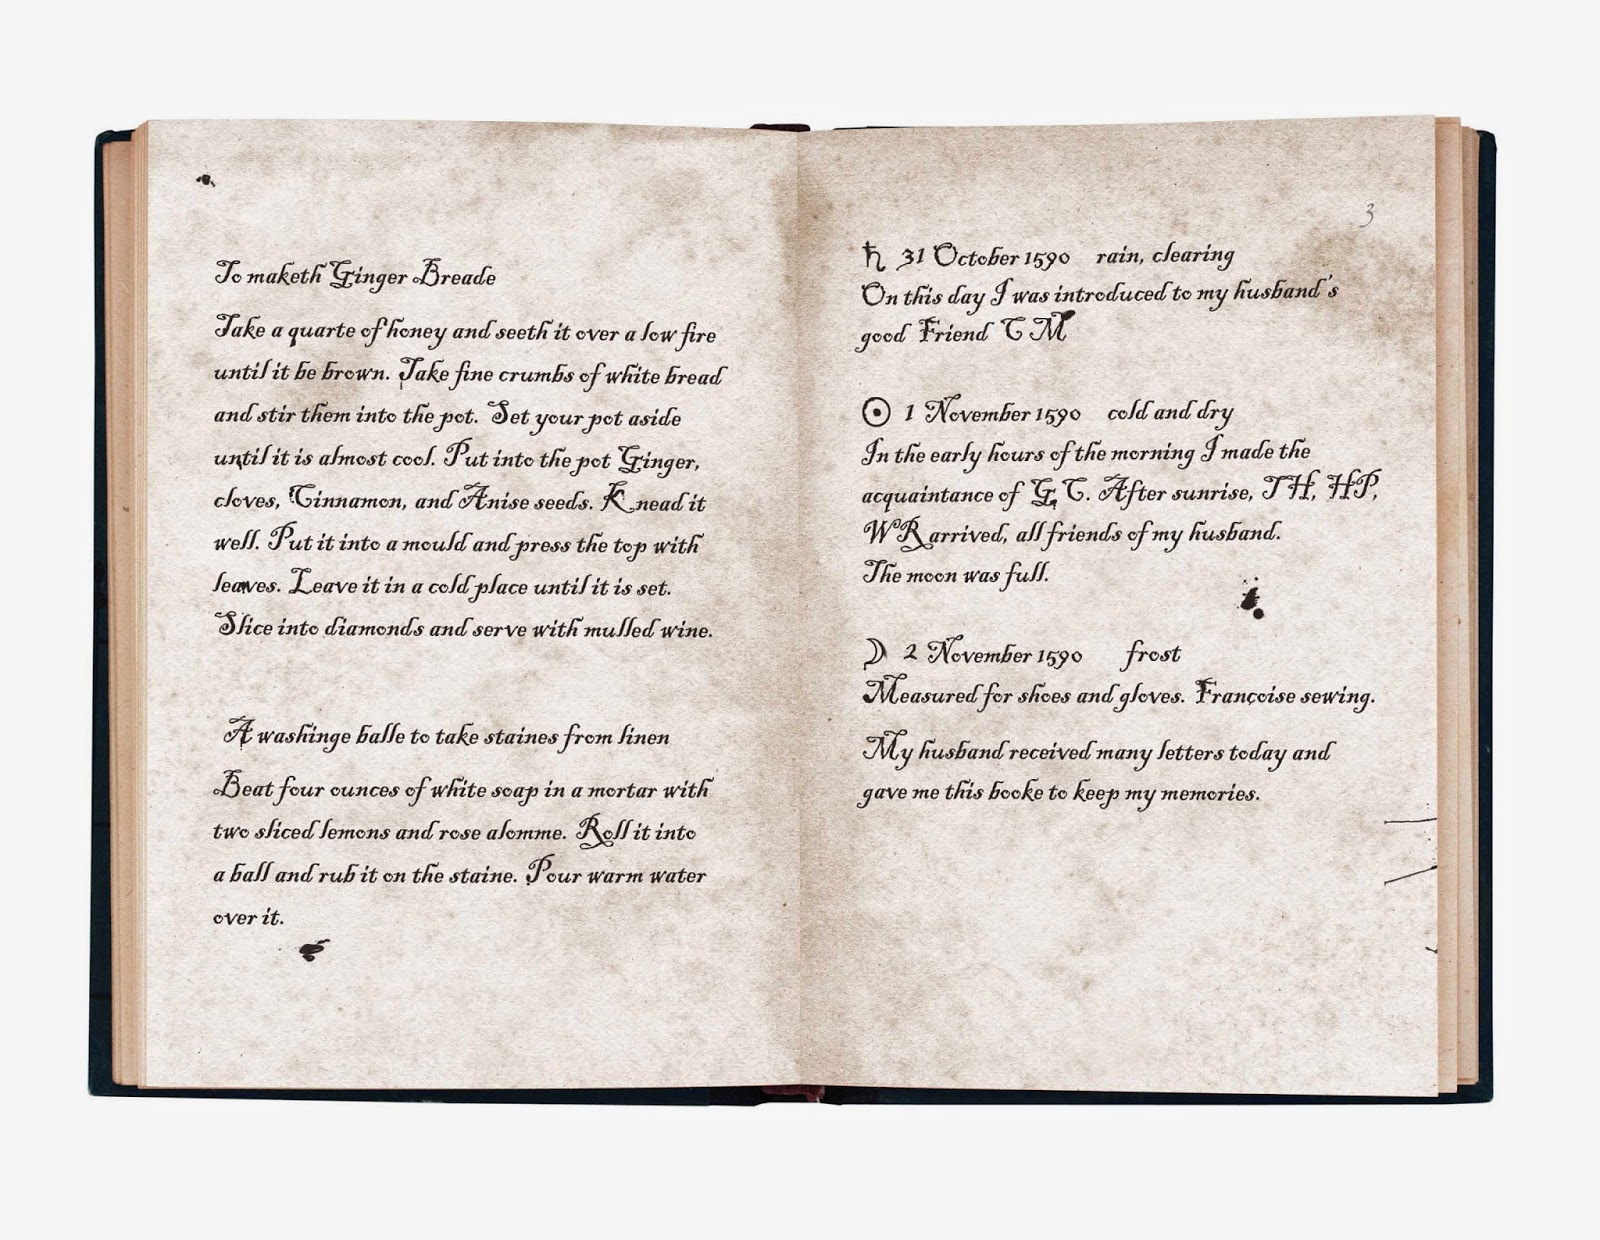 To maketh Ginger Breade
Take a quarte of honey and seeth it over a low fire
until it be brown. Take fine crumbs of white bread
and stir them into the pot. Set your pot aside
until it is almost cool. Put into the pot Ginger,
cloves, Cinnamon, and Anise seeds. Knead it
well. Put it into a mould and press the top with
leaves. Leave it in a cold place until it is set.
Slice into diamonds and serve with mulled wine.
A washinge balle to take staines from linen
Beat four ounces of white soap in a mortar with
two sliced lemons and rose alomme. Roll it into
a ball and rub it on the staine. Pour warm water
over it.
3
♄ 31 October 1590 rain, clearing
On this day I was introduced to my husband's
good Friend C M
☉ 1 November 1590 cold and dry
In the early hours of the morning I made the
acquaintance of G C. After sunrise, TH, HP,
WR arrived, all friends of my husband.
The moon was full.
☽ 2 November 1590 frost
Measured for shoes and gloves. Françoise sewing.
My husband received many letters today and
gave me this booke to keep my memories.